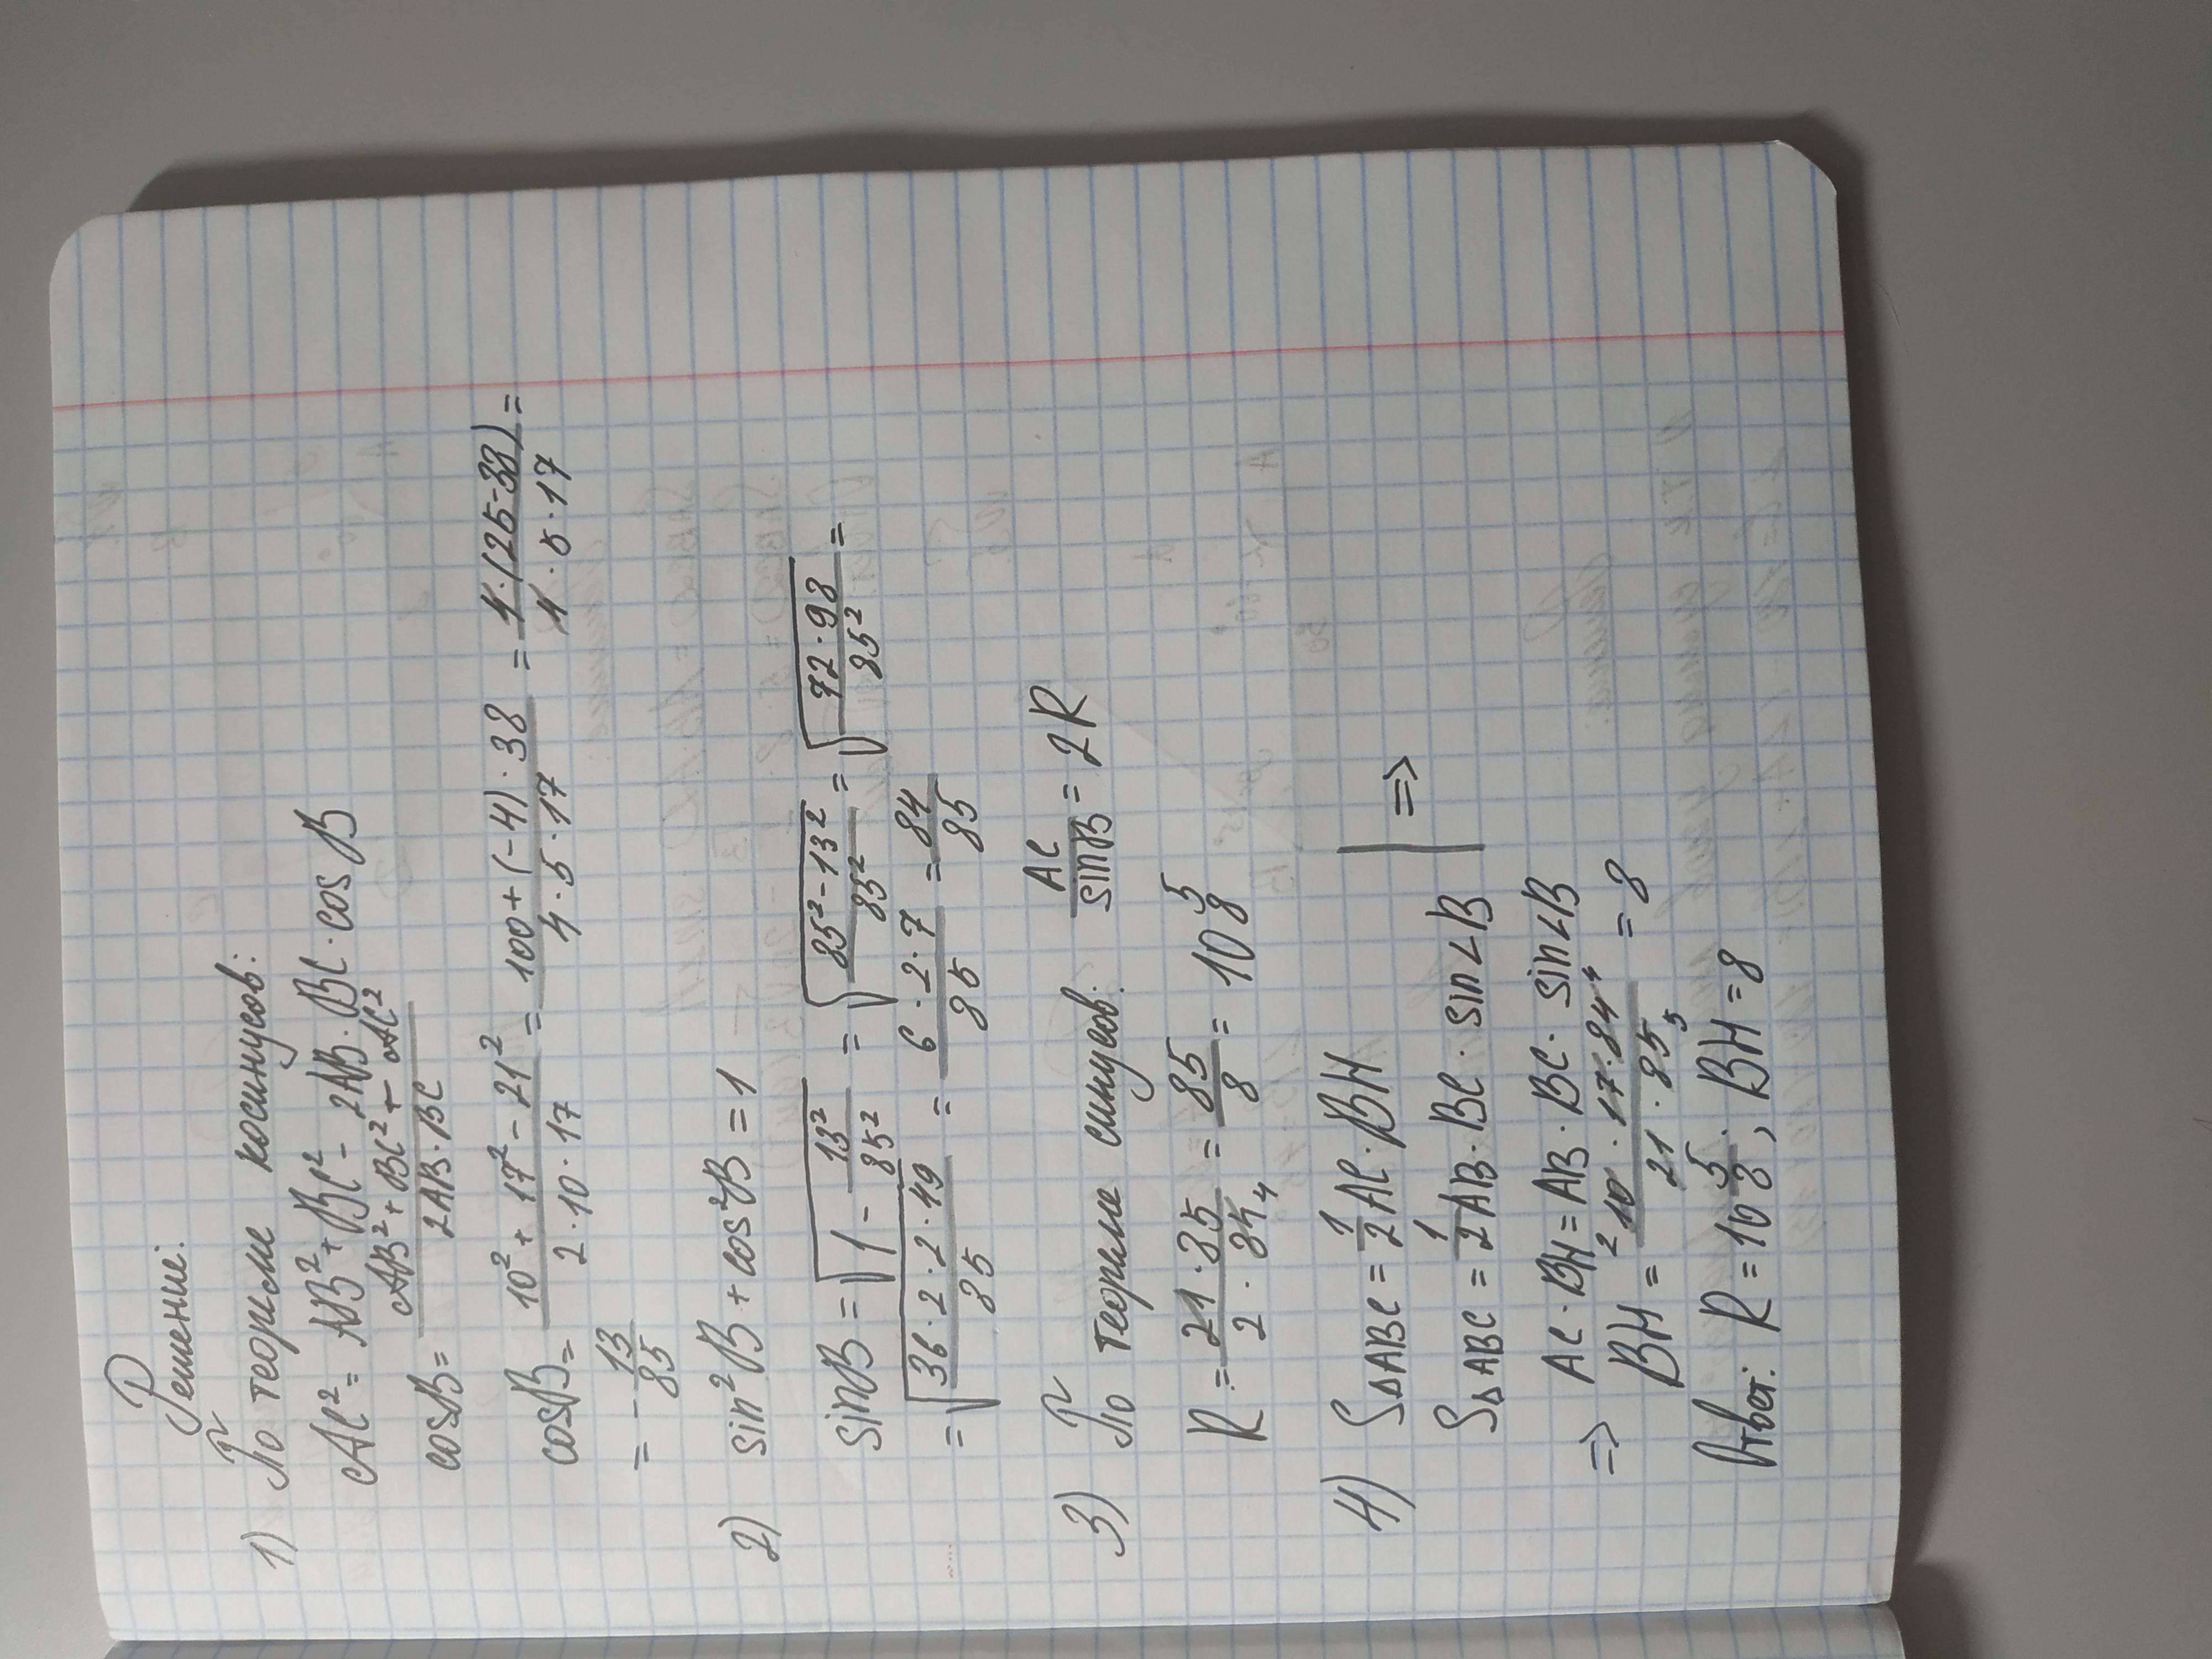 Решение:
1) По теореме косинусов:
AC² = AB² + BC² - 2AB · BC · cos B
cosB = (AB² + BC² + - AC²)/(2AB·BC)
cosB = (10² + 17² - 21²)/(2·10·17) = (100+(-4)·38)/(4·5·17) = (4·(25-38))/(4·5·17) =
= - 13/85
2) sin²B + cos²B = 1
sinB = √(1 - 13²/85²) = √((85²-13²)/85²) = √((72·98)/85²) =
= √(36·2·2·49)/85 = (6·2·7)/85 = 84/85
3) По теореме синусов: AC/sinB = 2R
R = (21·85)/(2·84₄) = 85/8 = 10 5/8
4) S∆ABC = 1/2 AC · BH
S∆ABC = 1/2 AB · BC · sin∠B | =>
=> AC · BH = AB · BC · sin∠B
BH = (²10 · 17 · 84⁴)/(21 · 85₅) = 8
Ответ: R = 10 5/8, BH = 8